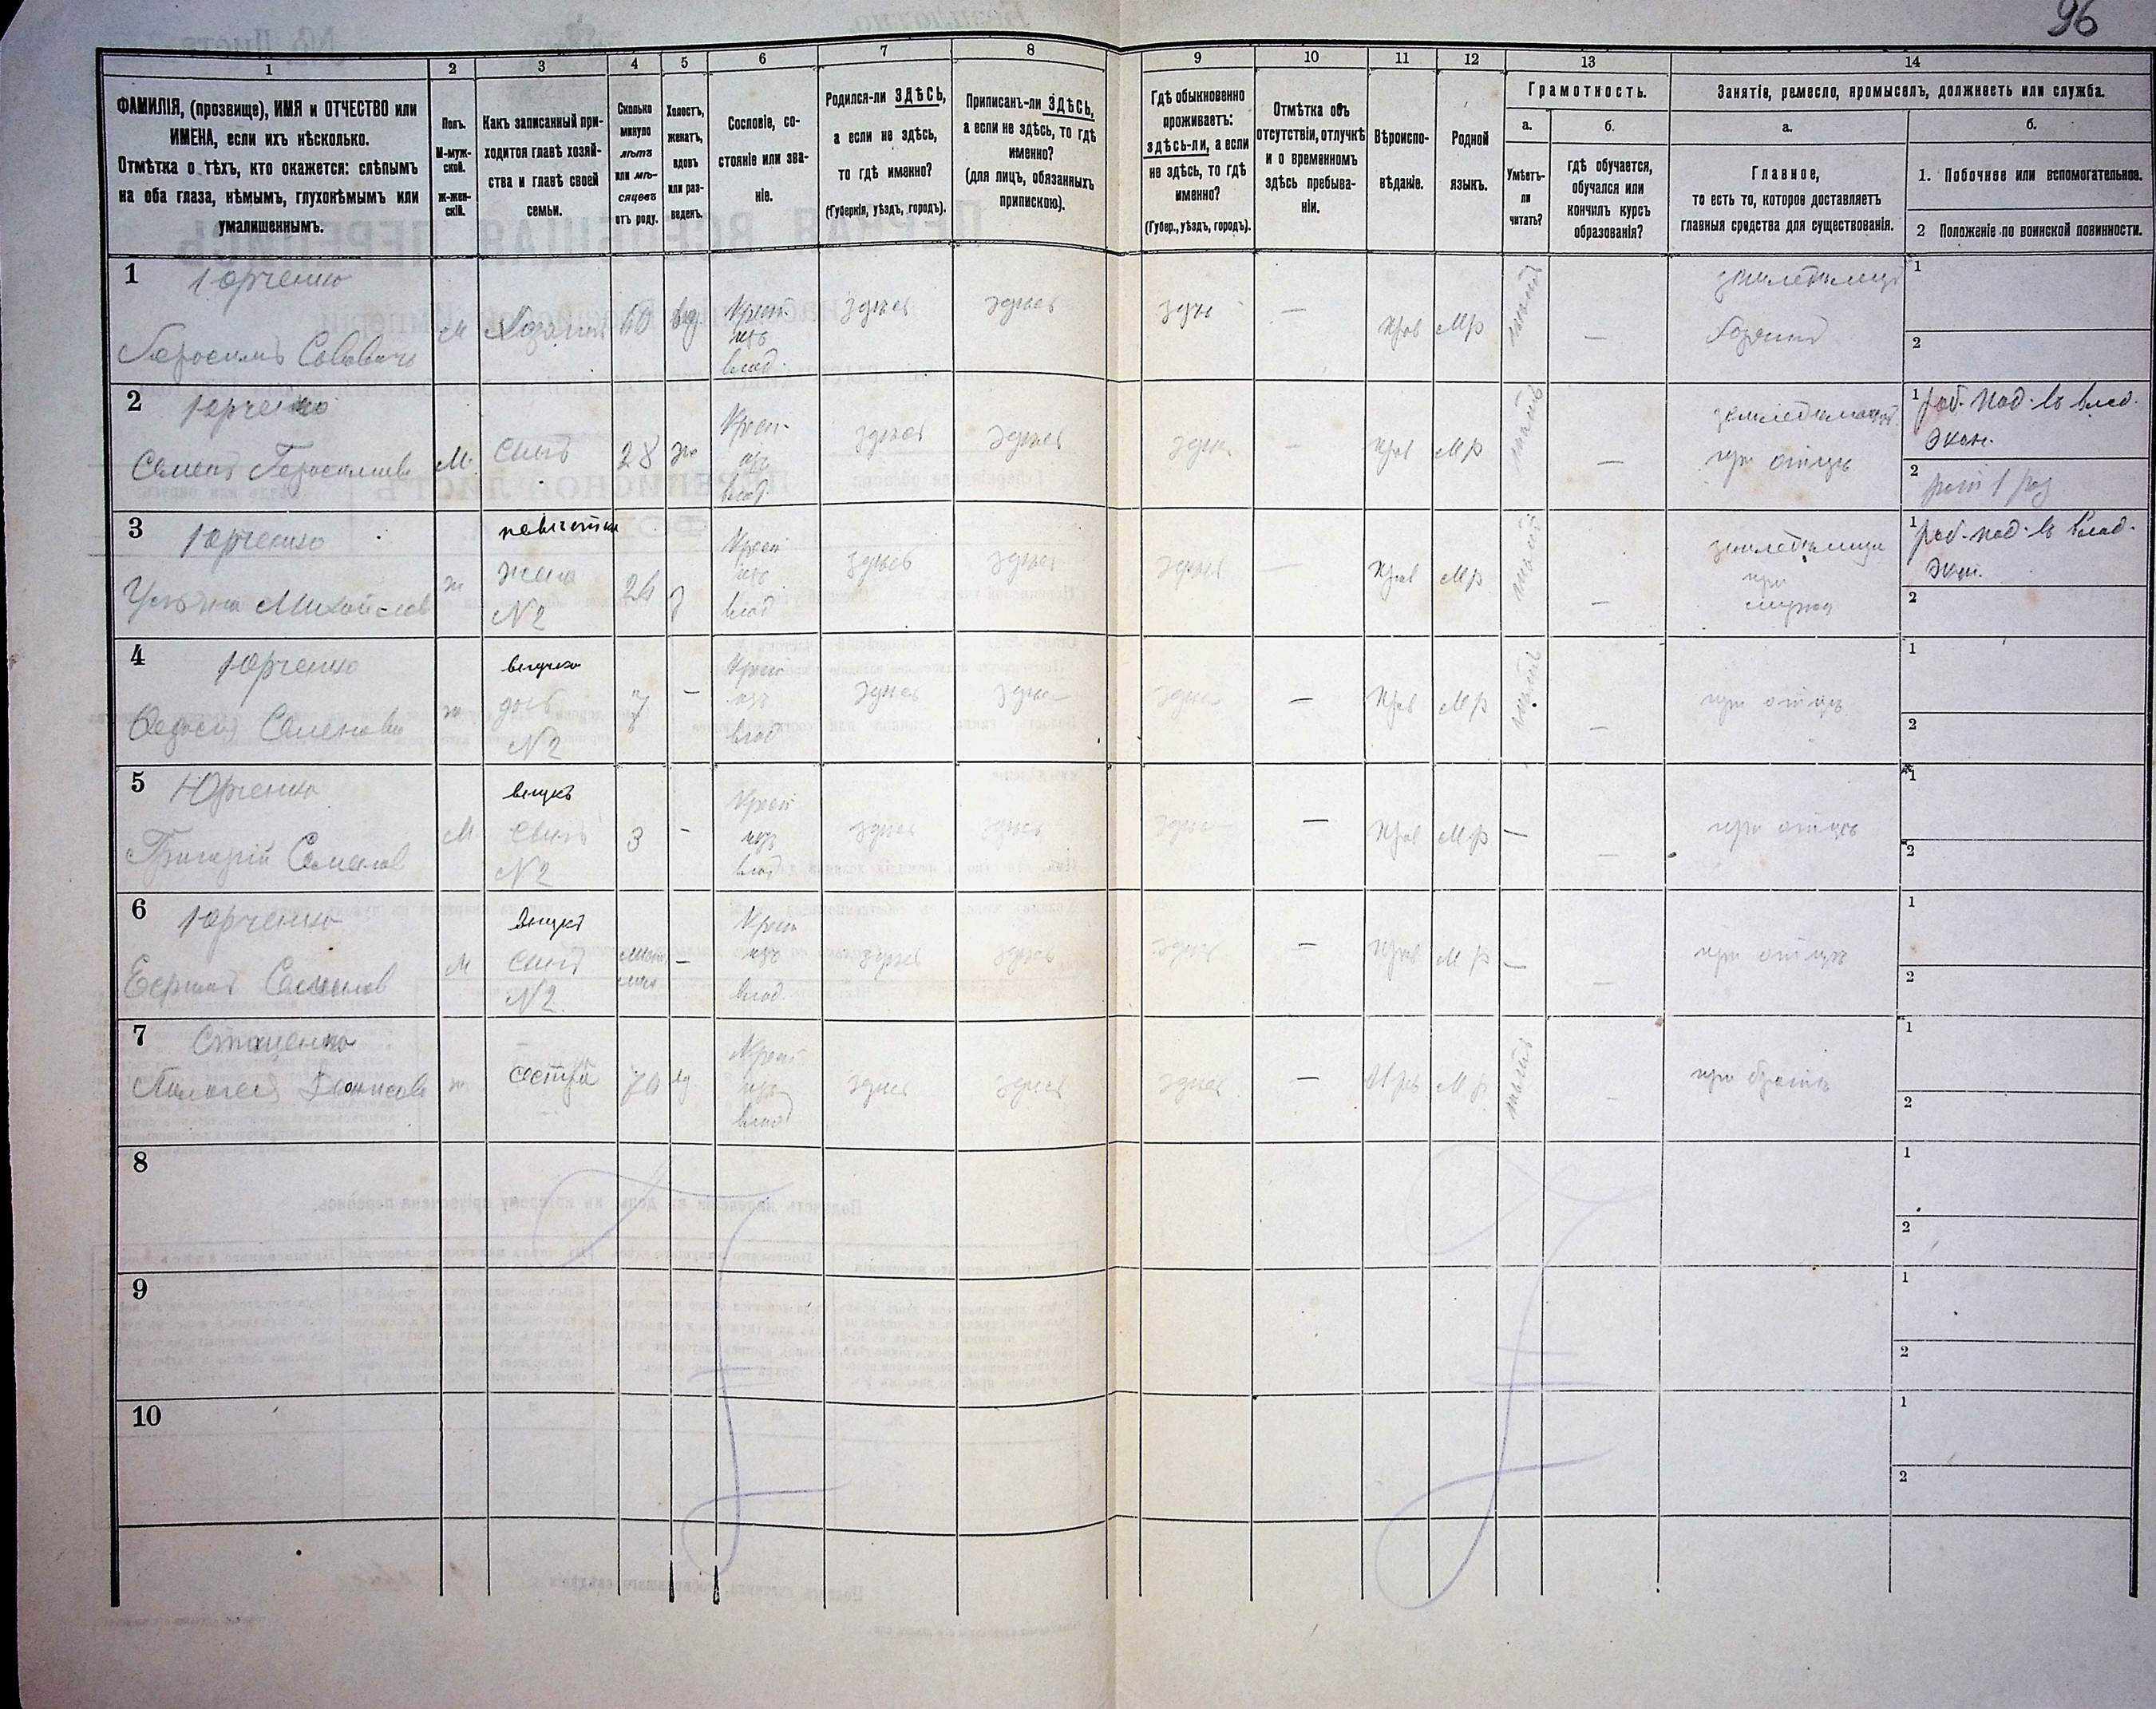 96
1 2 3 4 5 6 7 8 9 10 11 12 13 14
ФАМИЛІЯ, (прозвище), ИМЯ и ОТЧЕСТВО или
ИМЕНА, если ихъ нѣсколько.
Отмѣтка о тѣхъ, кто окажется: слѣпымъ
на оба глаза, нѣмымъ, глухонѣмымъ или
умалишеннымъ.
Полъ.
М-муж-
ской.
ж-жен-
скій.
Какъ записанный при-
ходится главѣ хозяй-
ства и главѣ своей
семьи.
Сколько
минуло
лѣтъ
или мѣ-
сяцевъ
отъ роду.
Холостъ,
женатъ,
вдовъ
или раз-
веденъ.
Сословіе, со-
стояніе или зва-
ніе.
Родился-ли ЗДѢСЬ,
а если не здѣсь,
то гдѣ именно?
(Губернія, уѣздъ, городъ).
Приписанъ-ли ЗДѢСЬ,
а если не здѣсь, то гдѣ
именно?
(для лицъ, обязанныхъ
припискою).
Гдѣ обыкновенно
проживаетъ:
здѣсь-ли, а если
не здѣсь, то гдѣ
именно?
(Губер., уѣздъ, городъ).
Отмѣтка объ
отсутствіи, отлучкѣ
и о временномъ
здѣсь пребыва-
ніи.
Вѣроиспо-
вѣданіе.
Родной
языкъ.
Грамотность.
а.
Умѣетъ-
ли
читать?
б.
гдѣ обучается,
обучался или
кончилъ курсъ
образованія?
Занятіе, ремесло, промыселъ, должность или служба.
а.
Главное,
то есть то, которое доставляетъ
главныя средства для существованія.
б.
1. Побочное или вспомогательное.
2 Положеніе по воинской повинности.
1 Юрченко
Герасимъ Совович
м Хозяинъ 60 вд. Крест. изъ влад. здѣсь здѣсь здѣсь — Прав МР нѣтъ —
Хозяинъ
1
2
2 Юрченко
Семенъ Герасимов
М. Сынъ 28 же Крест. изъ влад. здѣсь здѣсь здѣсь — Прав МР нѣтъ —
при отцѣ
1 раб. под. въ влад.
экон.
2
3 Юрченко
Ульяна Михайлов
ж невѣстка жена N2 Крест изъ влад здѣсь здѣсь здѣсь — Прав МР нѣтъ —
при
мужѣ
1 раб. под. въ влад.
экон.
2
4 Юрченко
Федосія Семенова
ж внучка доч N2 7 — Крест изъ влад здѣсь здѣсь здѣсь — Прав МР нѣтъ —
при отцѣ
1
2
5 Юрченко
Григорій Семенов
М внукъ сынъ N2 3 — Крест изъ влад здѣсь здѣсь здѣсь — Прав МР — —
при отцѣ
1
2
6 Юрченко
Семенов
М внукъ сынъ N2 — Крест изъ влад. здѣсь здѣсь здѣсь — Прав МР — —
при отцѣ
1
2
7 Стаценко
Денисова
ж сестра 70 вд Крест изъ влад здѣсь здѣсь здѣсь — Прав МР нѣтъ —
при братѣ
1
2
8
1
2
9
1
2
10
1
2